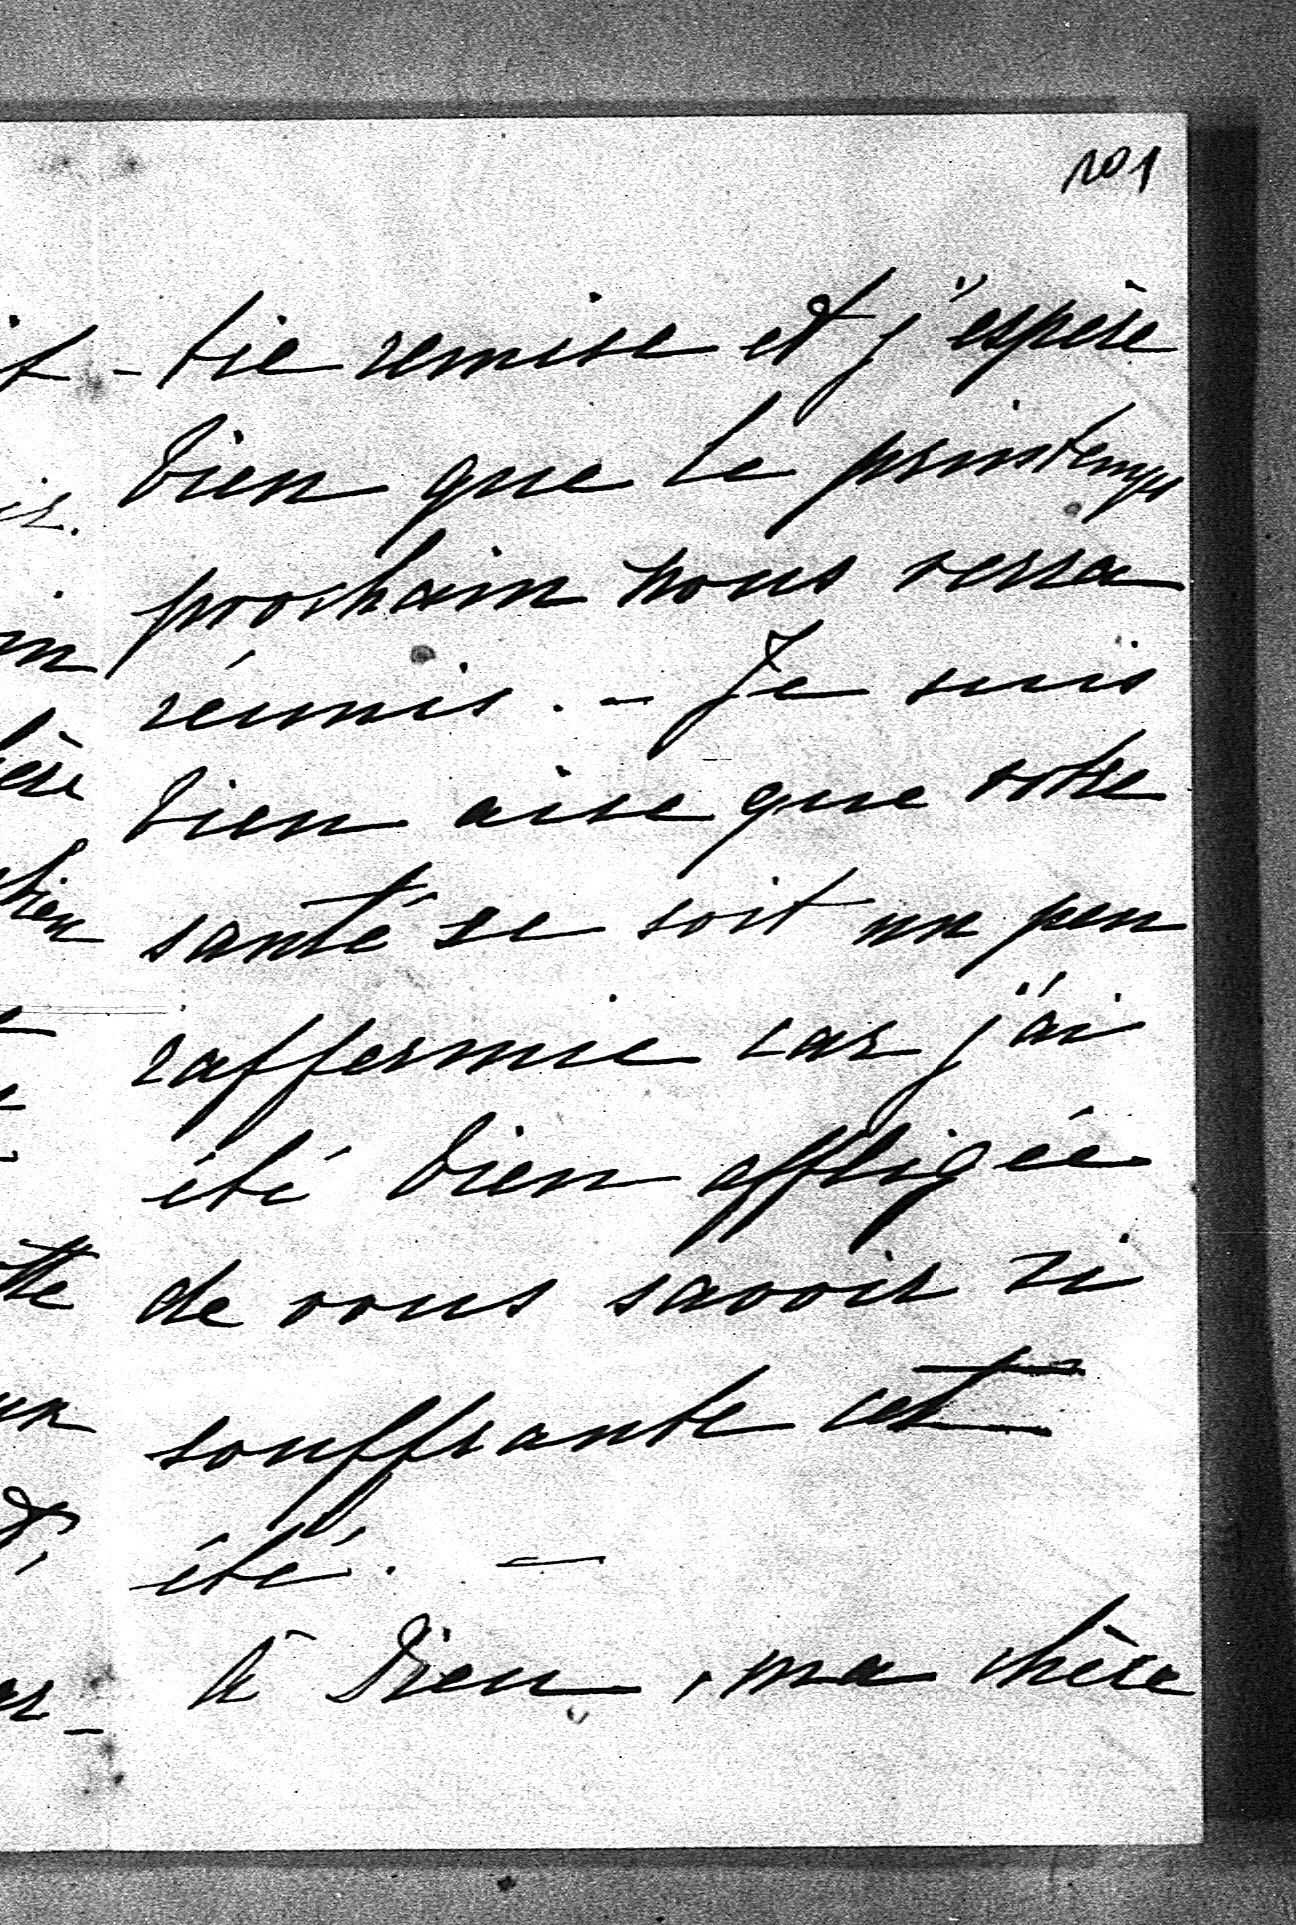 101
tie remise et j'espère
bien que le printemps
prochain nous verra
réunis. – Je suis
bien aise que votre
santé se soit un peu
raffermie car j'ai
été bien affligée
de vous savoir si
souffrante cet
été. —
à Dieu, ma chère